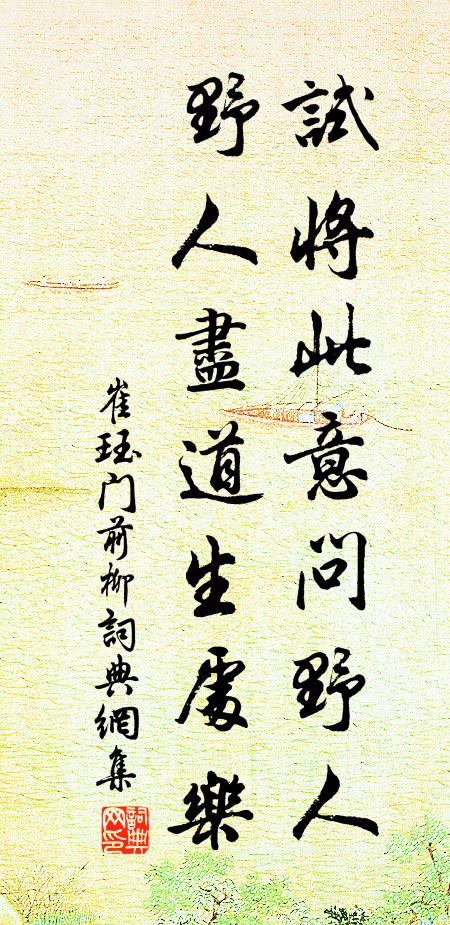 試將此意問野人
野人盡道生處樂
崔珏門前柳詞典網集
詞典
网印